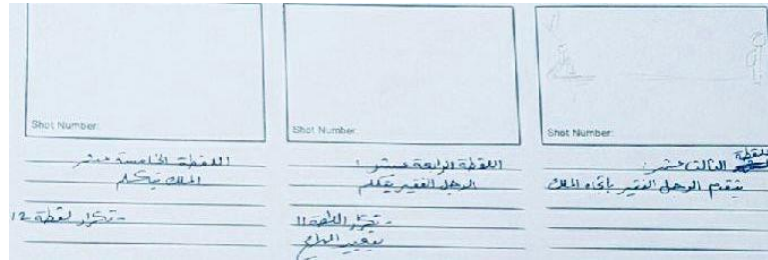 Shot Number:
اللقطة الثالث عشر:
يتقدم الرجل الفقير باتجاه الملك
Shot Number:
اللقطة الرابعة عشر:
الرجل الفقير يتكلم
- تكرار اللقطة 11
بتغيير
Shot Number:
اللقطة الخامسة عشر
الملك يتكلم
- تكرار لقطة 12